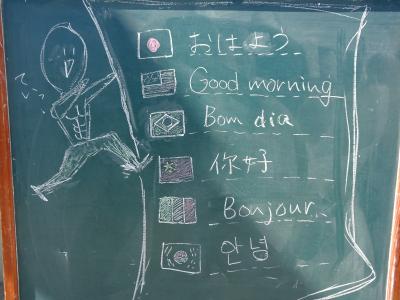 おはよう
Good morning
Bom dia
你好
Bonjour
안녕
ていっ